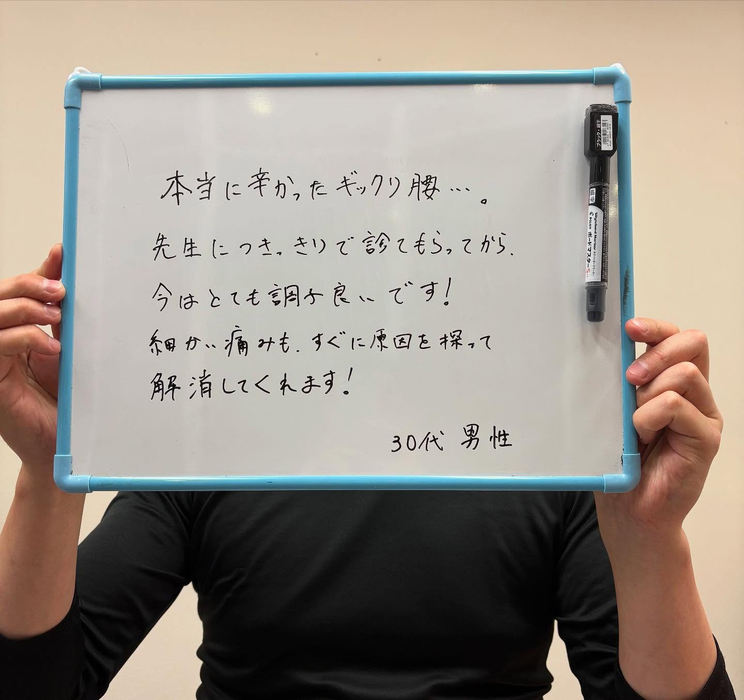 本当に辛かったギックリ腰…。
先生につきっきりで診てもらってから、
今はとても調子良いです!
細かい痛みも、すぐに原因を探って
解消してくれます!
30代 男性